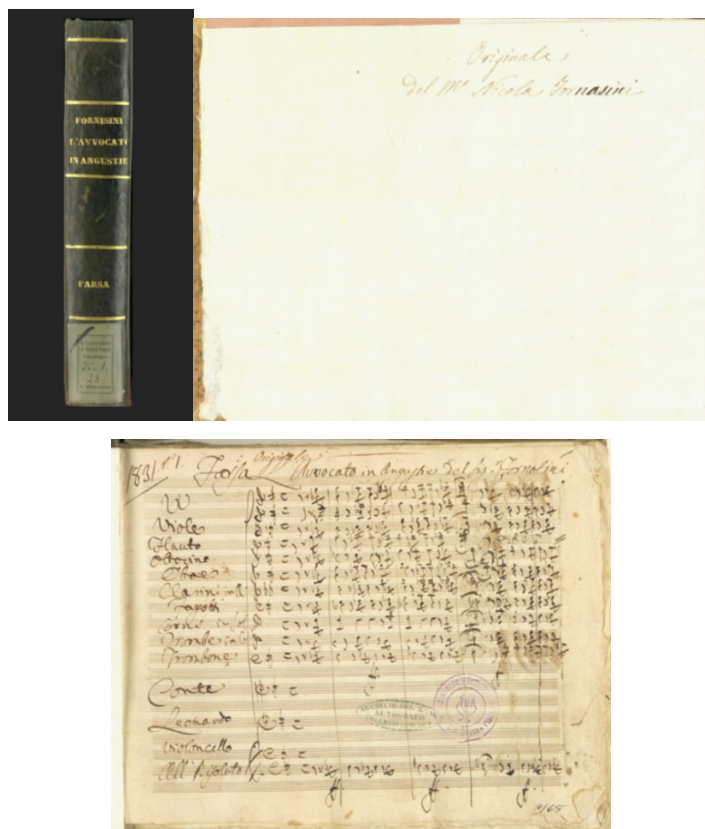 FORNISINI
L'AVVOCATO
IN ANGUSTIE
FARSA
20.1.
23
Originale
del Mº Nicola Fornasini
1831 Nº 1. Farsa Originale L'Avvocato in Angustie Del Sig. Fornasini
VV
Viole
Flauto
Ottavino
Oboe
Clarini in B
Fagotti
Corni in
Trombe in
Trombone
Conte
Leonardo
Violoncello
AUTOGRAFI